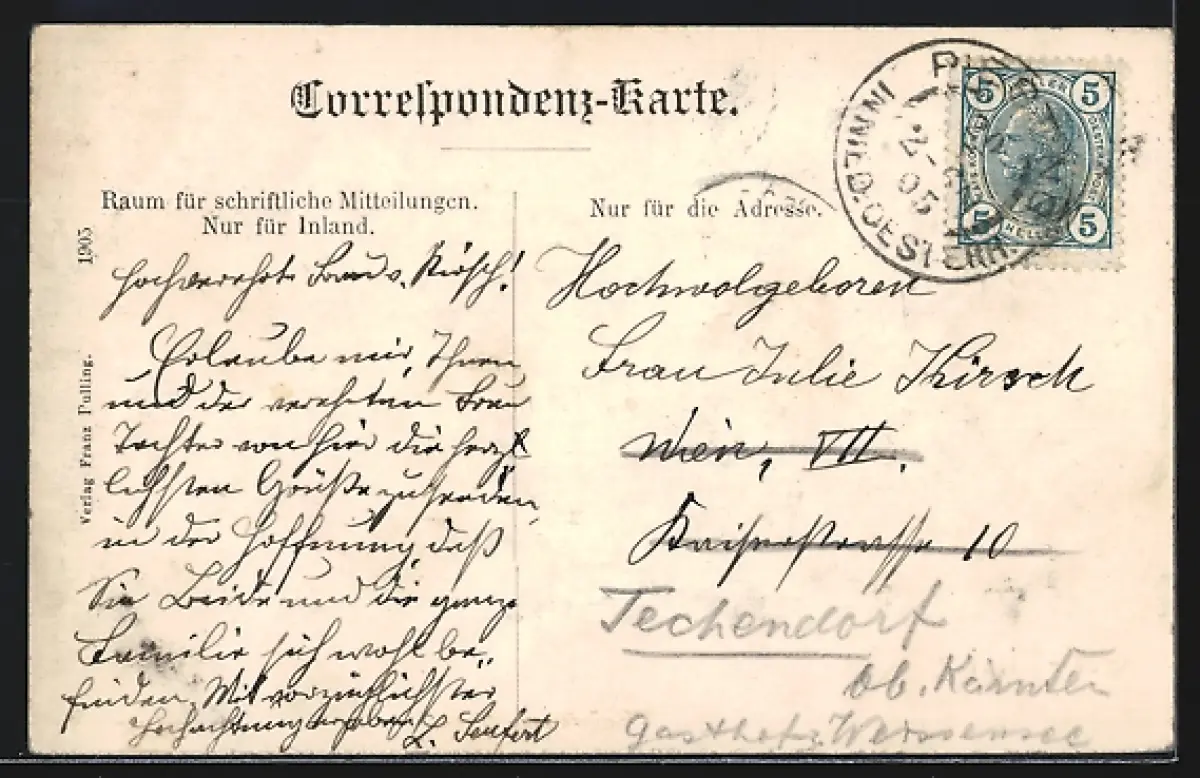 Correspondenz-Karte.
Raum für schriftliche Mitteilungen.
Nur für Inland.
Nur für die Adresse.
1905
Verlag Franz Pulling.
5 5
5 5
HELLER
INNI
OESTERR.
2
05
Hochverehrte Frau v. Kirsch!
Erlaube mir, Ihnen
und der verehrten Frau
Tochter von hier die herz-
lichsten Grüße zu senden,
in der Hoffnung, daß
Sie Beide und die ganze
Familie sich wohl be-
finden. Mit vorzüglichster
Hochachtung ergeben
Hochwolgeboren
Frau Julie Kirsch
Wien, VII.
Kaiserstrasse 10
Techendorf
Ob. Kärnten
Gasthof z. Weissensee